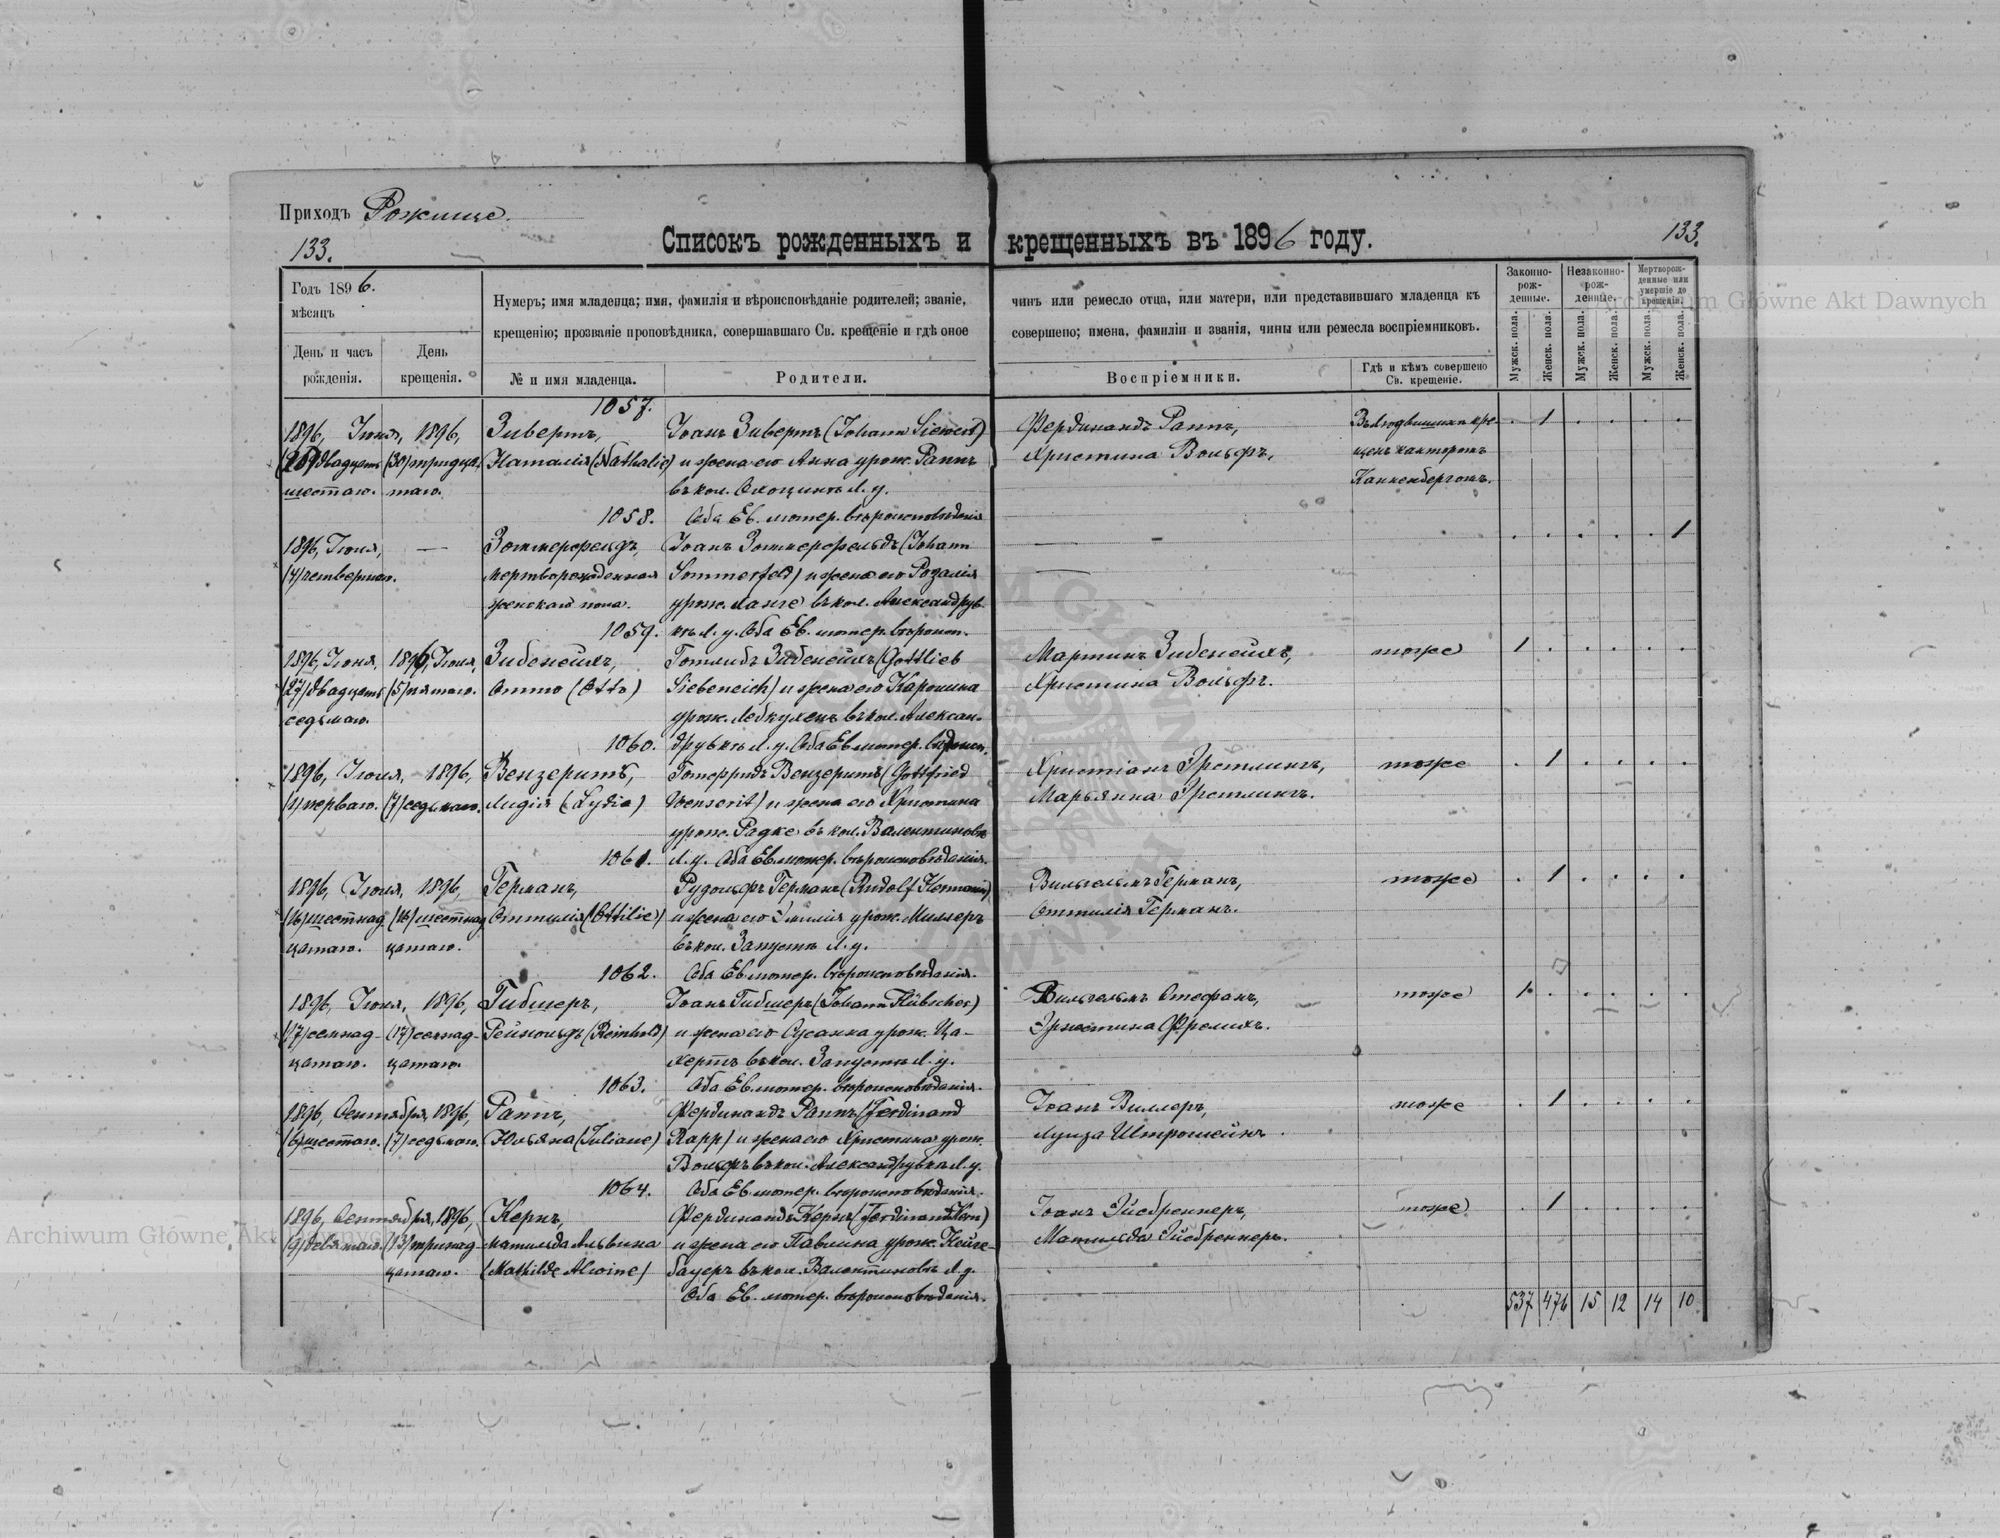 Приходъ Рожище.
133.
Списокъ рожденныхъ и крещенныхъ въ 1896 году.
133.
Годъ 1896.
мѣсяцъ
День и часъ рожденія.
День крещенія.
Нумеръ; имя младенца; имя, фамилія и вѣроисповѣданіе родителей; званіе, чинъ или ремесло отца, или матери, или представившаго младенца къ
крещенію; прозваніе проповѣдника, совершавшаго Св. крещеніе и гдѣ оное совершено; имена, фамиліи и званія, чины или ремесла воспріемниковъ.
№ и имя младенца.
Родители.
Воспріемники.
Гдѣ и кѣмъ совершено Св. крещеніе.
Законно-рожденные.
Незаконно-рожденные.
Мертворожденные или умершіе до крещенія.
Мужск. пола.
Женск. пола.
Мужск. пола.
Женск. пола.
Мужск. пола.
Женск. пола.
1057.
1896, Іюня, 1896, Зивертъ, Іоанъ Зивертъ (Johann Siewert) Фердинандъ Раппъ, 1
(26) двадцать (30) тридца- Наталія (Nathalie) и жена его Анна урож. Раппъ Христина Вольфъ, щенъ канторомъ
шестаго. таго. въ кол. Л. у. Канненбергомъ.
1058. Оба Ев. лютер. вѣроисповѣданія
1896, Іюня, — Зоммерфельдъ, Іоанъ Зоммерфельдъ (Johann — 1
(4) четвертаго. мертворожденная Sommerfeld) и жена его Розалія
женскаго пола. урож. Ланге въ кол. Александрув-
1059. кѣ Л. у. Оба Ев. лютер. вѣроисп.
1896, Іюня, 1896, Іюля, Зибенейхъ, Готлибъ Зибенейхъ (Gottlieb Мартинъ Зибенейхъ, тоже 1
(27) двадцать (5) пятаго. Отто (Otto) Siebeneich) и жена его Каролина Христина Вольфъ.
седьмаго. урож. Лебкухенъ въ кол. Алексан-
1060. друвкѣ Л. у. Оба Ев. лютер. вѣроисп.
1896, Іюля, 1896, Вензеритъ, Готфридъ Вензеритъ (Gottfried Христіанъ Эрстлингъ, тоже 1
(1) перваго. (7) седьмаго. Лидія (Lydia) Wenserit) и жена его Христина Марьянна Эрстлингъ.
урож. Радке въ кол. Валентиновкѣ
1061. Л. у. Оба Ев. лютер. вѣроисповѣданія.
1896, Іюля, 1896, Германъ, Рудольфъ Германъ (Rudolf Hermann) Вильгельмъ Германъ, тоже 1
(16) шестнад- (16) шестнад- Оттилія (Ottilie) и жена его Эмилія урож. Миллеръ Оттилія Германъ.
цатаго. цатаго. въ кол. Запустѣ Л. у.
1062. Оба Ев. лютер. вѣроисповѣданія.
1896, Іюля, 1896, Гибшеръ, Іоанъ Гибшеръ (Johann Hübscher) Вильгельмъ Стефанъ, тоже 1
(17) семнад- (17) семнад- Рейнольдъ (Reinhold) и жена его Сусанна урож. Ца- Эрнестина Фрелихъ.
цатаго. цатаго. хертъ въ кол. Запустѣ Л. у.
1063. Оба Ев. лютер. вѣроисповѣданія.
1896, Сентября, 1896, Раппъ, Фердинандъ Раппъ (Ferdinand Іоанъ Виллеръ, тоже 1
(6) шестаго. (7) седьмаго. Юльяна (Juliane) Rapp) и жена его Христина урож. Луиза Штромейнъ.
Вольфъ въ кол. Александрувкѣ Л. у.
1064. Оба Ев. лютер. вѣроисповѣданія.
1896, Сентября, 1896, Кернъ, Фердинандъ Кернъ (Ferdinand Kern) Іоанъ Эйсбреннеръ, тоже 1
(9) девятаго. (13) тринад- Матильда Альвина и жена его Павлина урож. Нейге- Матильда Эйсбреннеръ.
цатаго. (Mathilde Alwine) бауеръ въ кол. Валентиновкѣ Л. у.
Оба Ев. лютер. вѣроисповѣданія.
537 476 15 12 14 10
Archiwum Główne Akt Dawnych
Archiwum Główne Akt Dawnych